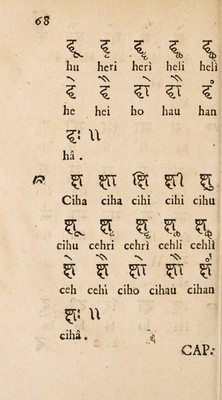 68
हू हृ हॄ हॢ हॣ
hu heri herì heli helì
हे है हो हौ हं
he hei ho hau han
हः ॥
hâ.
क्ष क्षा क्षि क्षी क्षु
Ciha ciha cihi cihi cihu
क्षू क्षृ क्षॄ क्षॢ क्षॣ
cihu cehri cehrì cehli cehlì
क्षे क्षै क्षो क्षौ क्षं
ceh cehi ciho cihau cihan
क्षः ॥
cihâ.
CAP.